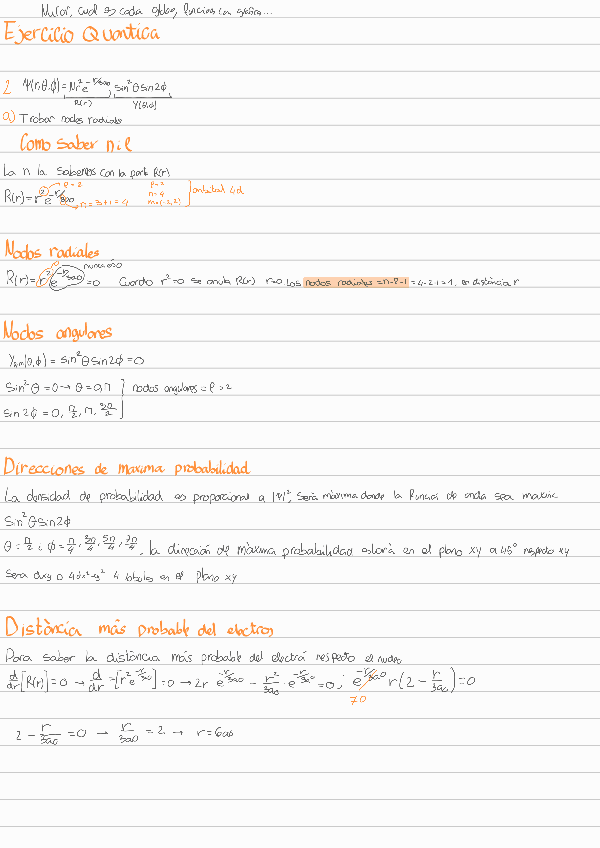 Mirar, cual es cada orbital, funcions con grafica...
Ejercicio Quantica
2. Ψ(r,θ,ϕ) = Nr² e^(-r/3a₀) sin²θ sin2ϕ
R(r) Y(θ,ϕ)
a) Trobar nodos radiales
Como saber n i l
La n la sabemos con la part R(r)
R(r) = r² e^(-r/3a₀) l = 2 n = 3+1 = 4
l = 2
n = 4
m = (-2,2)
orbital 4d
Nodos radiales
R(r) = r² e^(-r/3a₀) = 0 nunca es 0 Cuando r² = 0 se anula R(r) r=0. Los nodos radiales = n-l-1 = 4-2-1 = 1, en distància r
Nodos angulares
Yₗₘ(θ,ϕ) = sin²θ sin2ϕ = 0
sin²θ = 0 → θ = 0, π
nodos angulares = l = 2
sin 2ϕ = 0, π/2, π, 3π/2
Direcciones de maxima probabilidad
La densidad de probabilidad es proporcional a |Ψ|², será màxima donde la funció de onda sea maxima
Sin²θ Sin2ϕ
θ = π/2 i ϕ = π/4, 3π/4, 5π/4, 7π/4, la dirección de màxima probabilidad estará en el plano xy a 45° respecto xy
Sera dxy o 4dx²-y² 4 lobulos en el plano xy
Distància más probable del electron
Para saber la distància más probable del electró respecto el nucleo
d/dr [R(r)] = 0 → d/dr [r² e^(-r/3a₀)] = 0 → 2r e^(-r/3a₀) - r²/3a₀ · e^(-r/3a₀) = 0; e^(-r/3a₀) r (2 - r/3a₀) = 0
≠0
2 - r/3a₀ = 0 → r/3a₀ = 2 → r = 6a₀